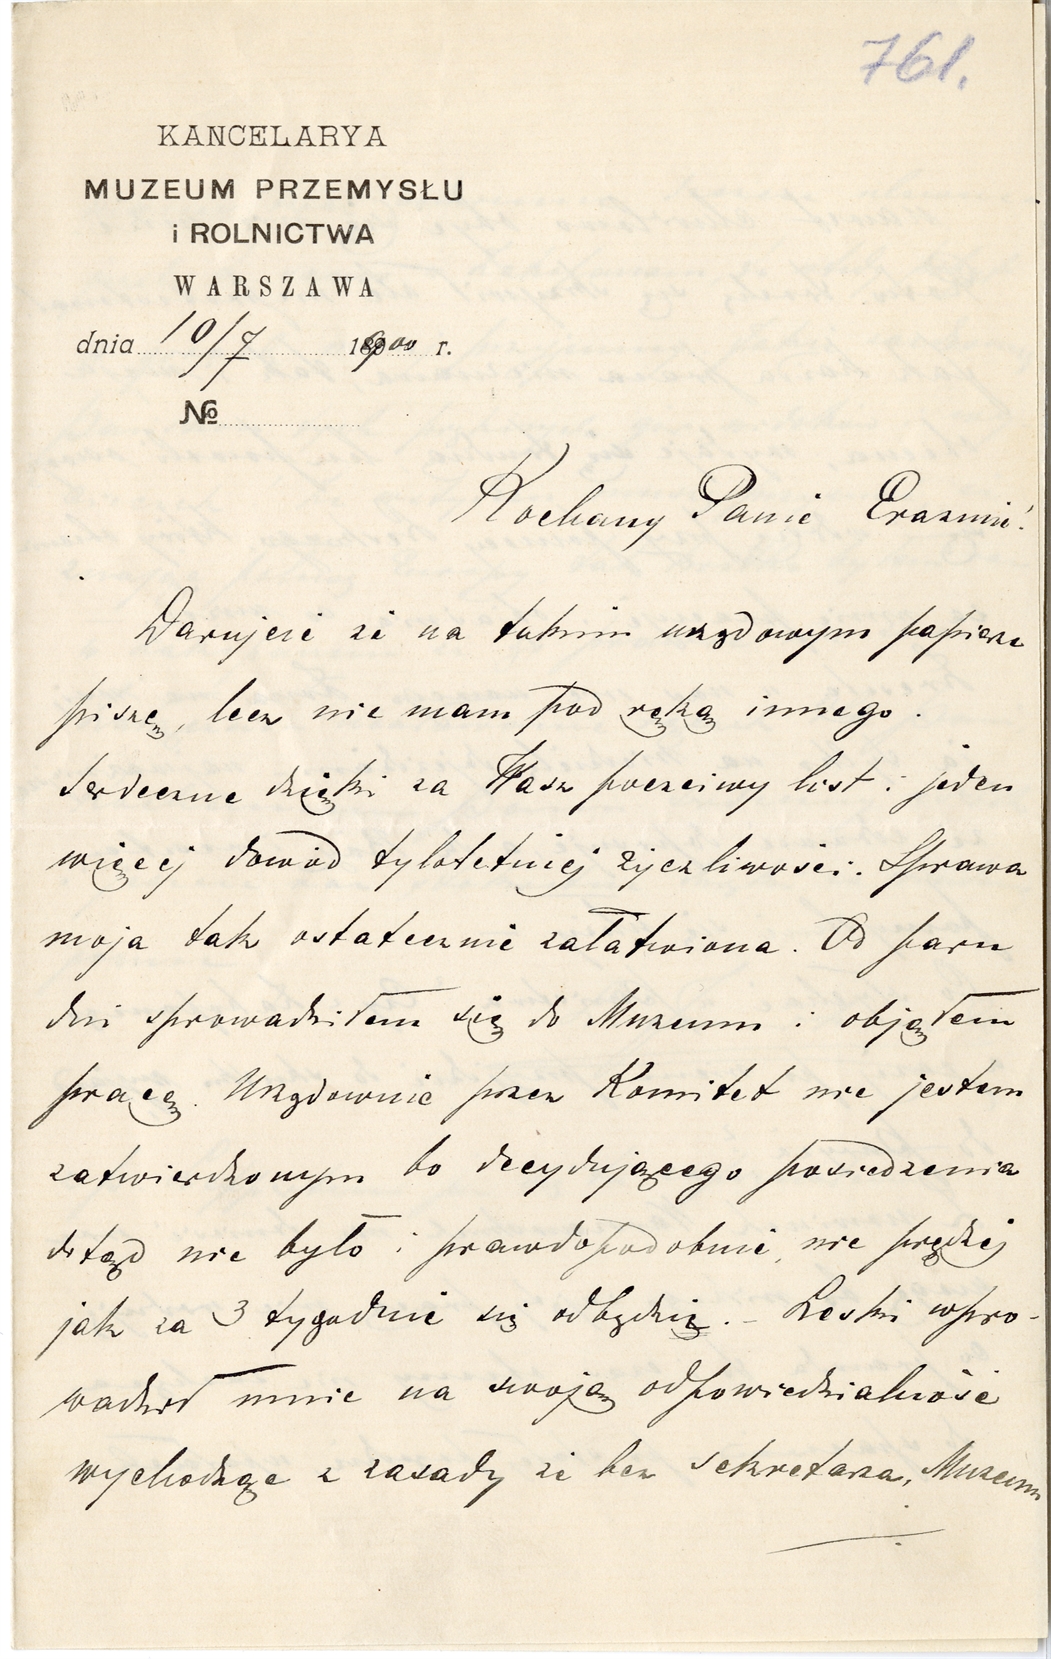 761.
KANCELARYA
MUZEUM PRZEMYSŁU
i ROLNICTWA
WARSZAWA
dnia 10/7 1900 r.
№
Kochany Panie Erazmie!
Darujcie że na takim urzędowym papierze
piszę, lecz nie mam pod ręką innego.
Serdeczne dzięki za Wasz poczciwy list i jeden
więcej dowód tyloletniej życzliwości. Sprawa
moja tak ostatecznie załatwiona. Od paru
dni sprowadziłem się do Muzeum i objąłem
pracę. Urzędownie przez Komitet nie jestem
zatwierdzonym bo decydującego posiedzenia
dotąd nie było i prawdopodobnie, nie prędzej
jak za 3 tygodnie się odbędzie. – Leski wpro-
wadził mnie na swoją odpowiedzialność
wychodząc z zasady że bez sekretarza, Muzeum